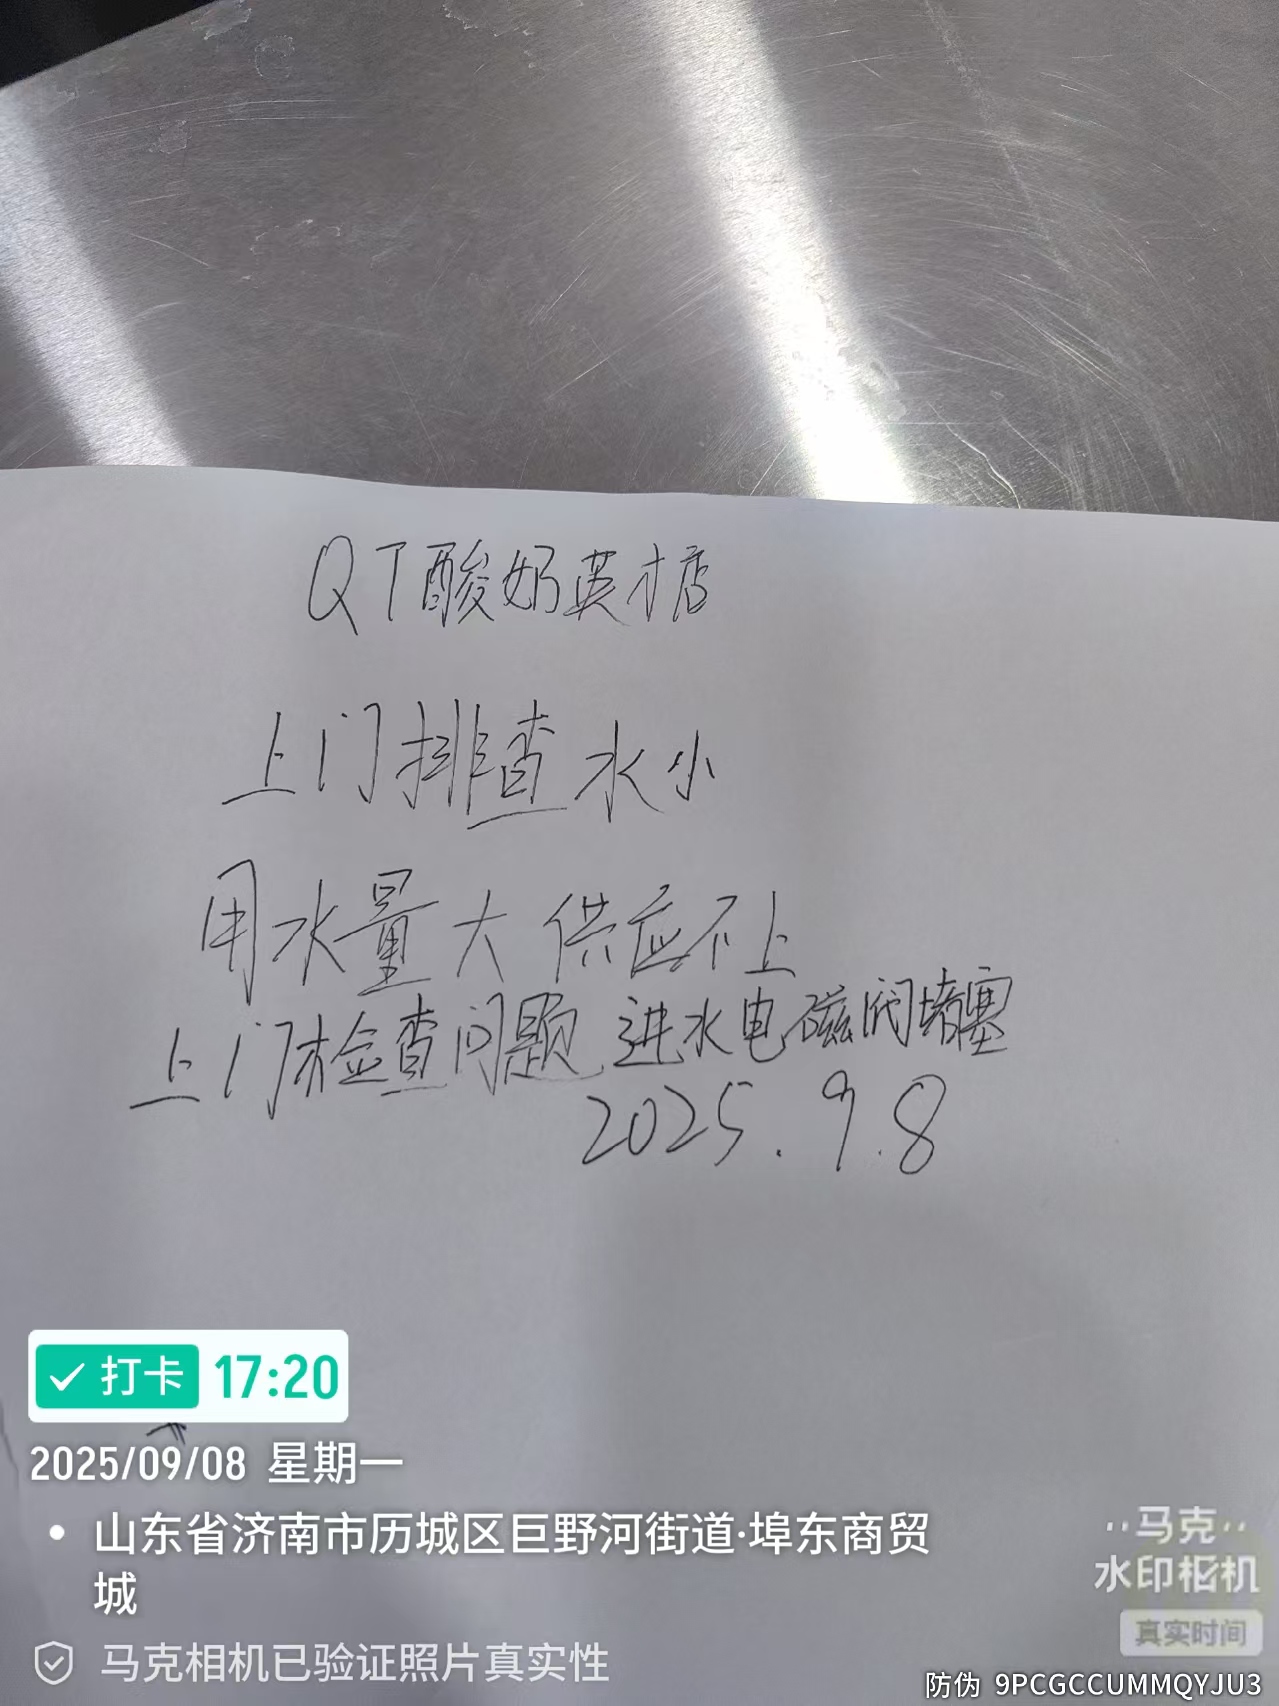 QT酸奶英才店
上门排查水小
用水量大 供应不上
上门检查问题 进水电磁阀堵塞
2025.9.8
打卡 17:20
2025/09/08 星期一
山东省济南市历城区巨野河街道·埠东商贸
城
马克相机已验证照片真实性
马克
水印相机
真实时间
防伪 9PCGCCUMMQYJU3